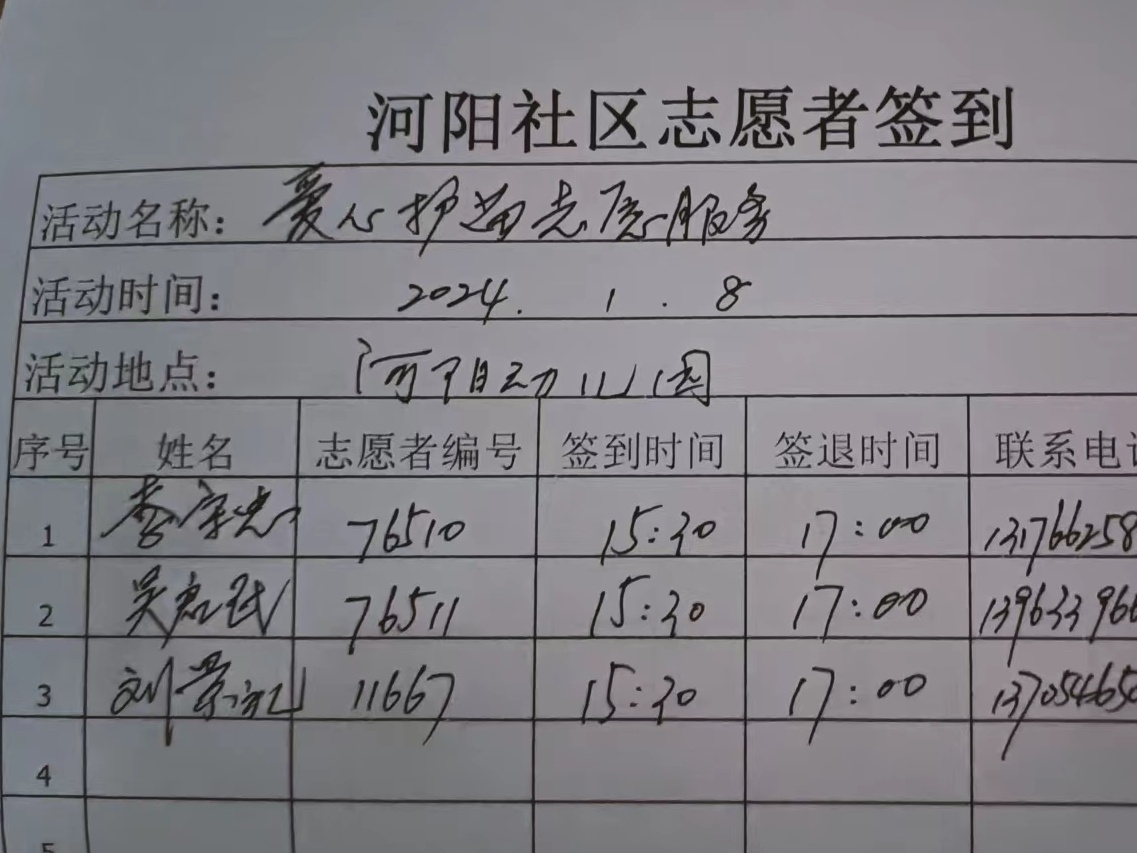 河阳社区志愿者签到
活动名称：爱心护苗志愿服务
活动时间：2024.1.8
活动地点：河阳幼儿园
序号 姓名 志愿者编号 签到时间 签退时间 联系电
1 李宗忠 76510 15:30 17:00 131766258
2 吴 76511 15:30 17:00 13963396
3 刘景 11667 15:30 17:00 137054650
4
5